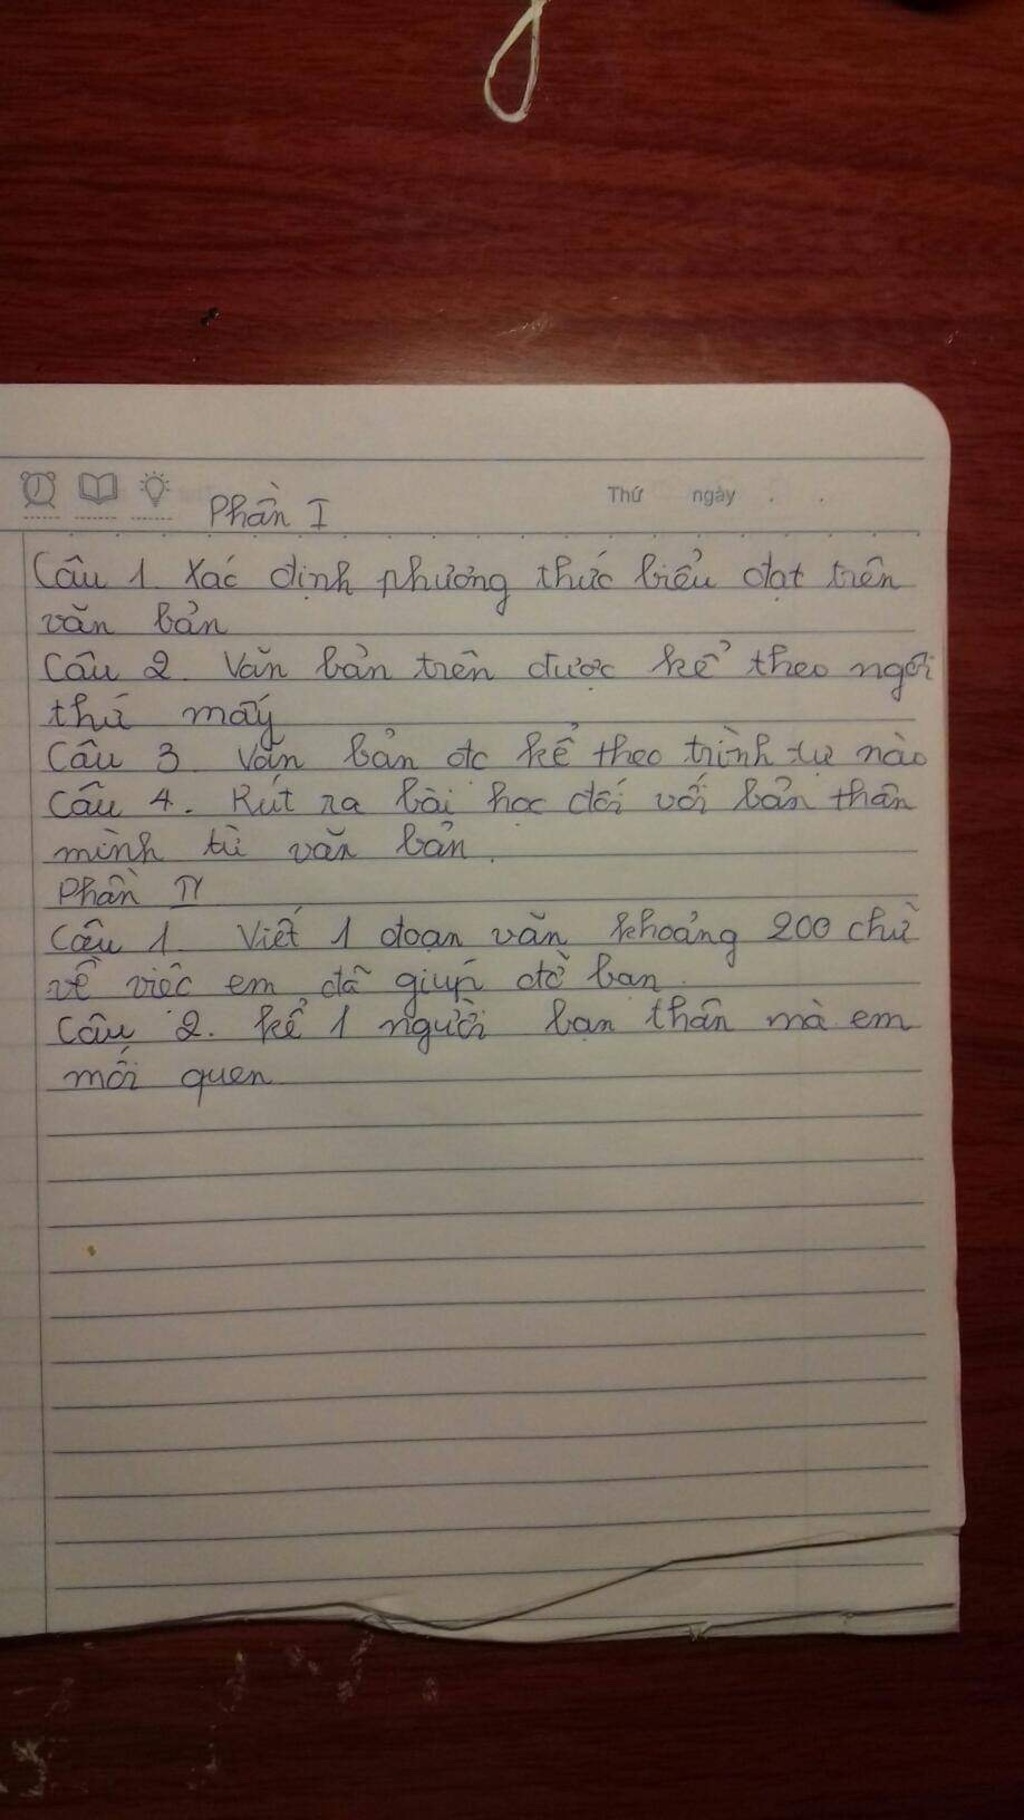 Thứ ngày . .
Phần I
Câu 1. Xác định phương thức biểu đạt trên
văn bản
Câu 2. Văn bản trên được kể theo ngôi
thứ mấy
Câu 3. Văn bản đc kể theo trình tự nào
Câu 4. Rút ra bài học đối với bản thân
mình từ văn bản.
Phần II
Câu 1. Viết 1 đoạn văn khoảng 200 chữ
về việc em đã giúp đỡ bạn.
Câu 2. kể 1 người bạn thân mà em
mới quen